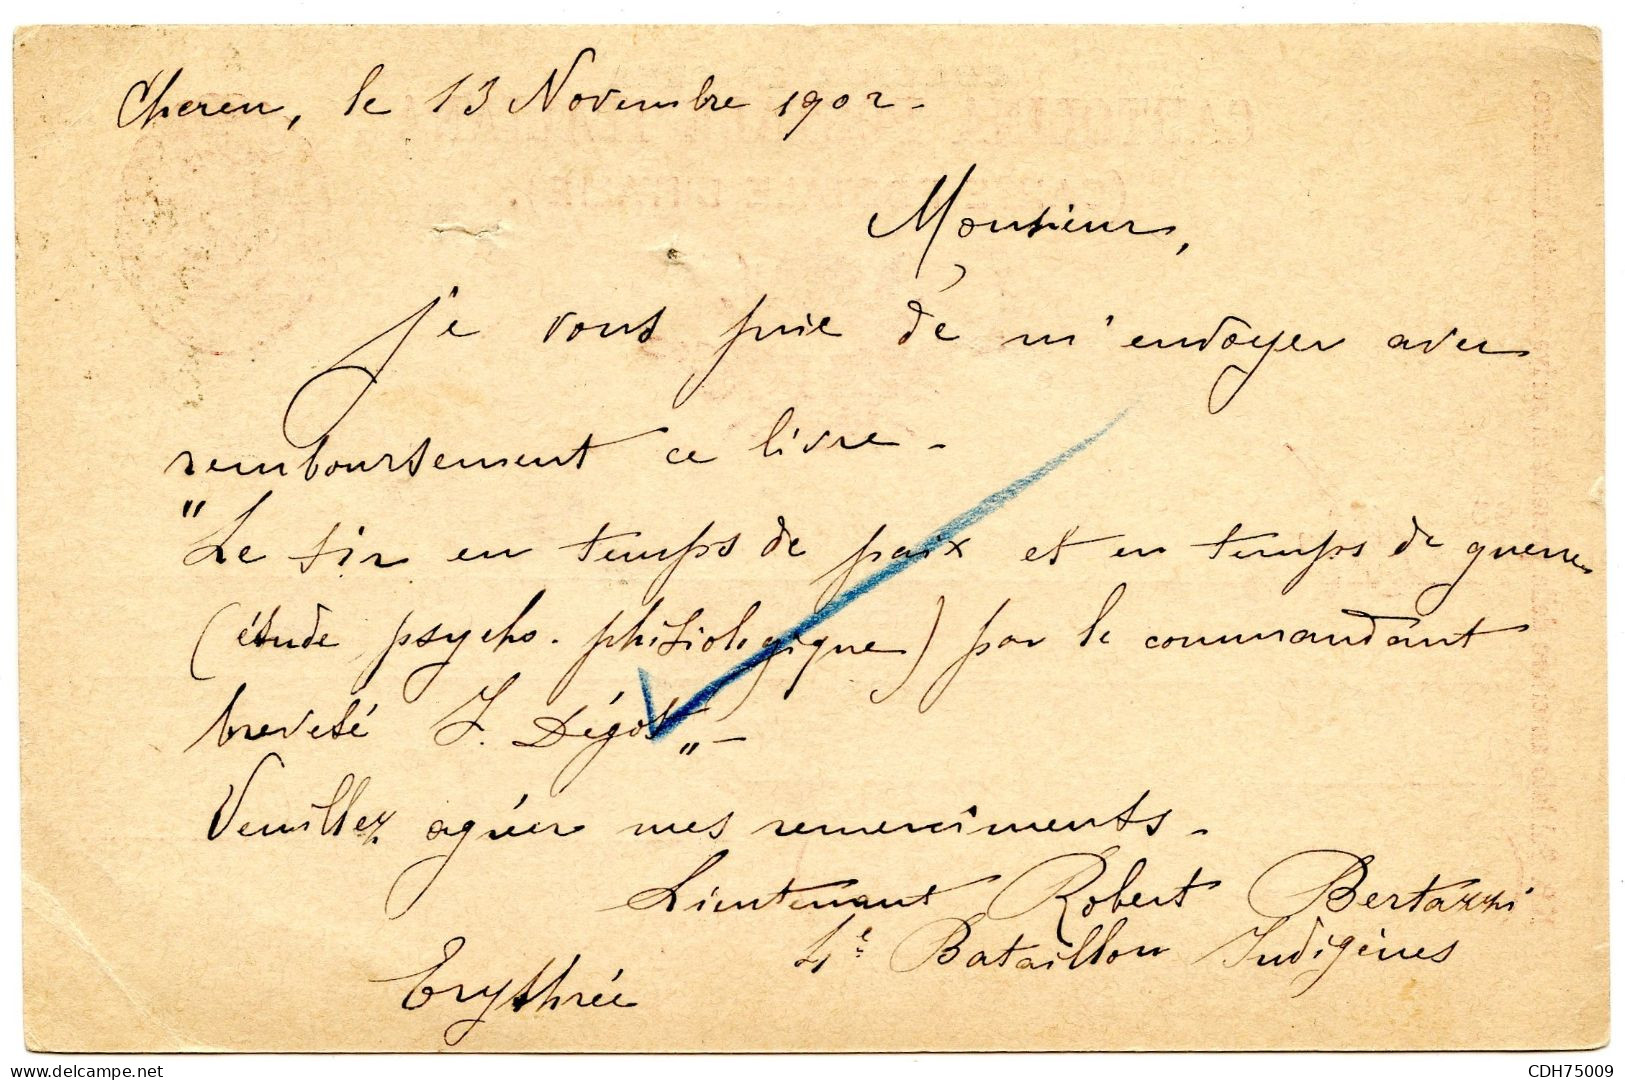 Cheren, le 13 Novembre 1902.
Monsieur,
je vous prie de m'envoyer avec
remboursement ce livre -
"Le tir en temps de paix et en temps de guerre
(étude psycho-phisiologique) par le commandant
breveté J. Dégot„ -
Veuillez agréer mes remerciments.
Lieutenant Robert Bertazzi
4e Bataillon Indigènes
Erythrée
delcampe.net
CDH75009